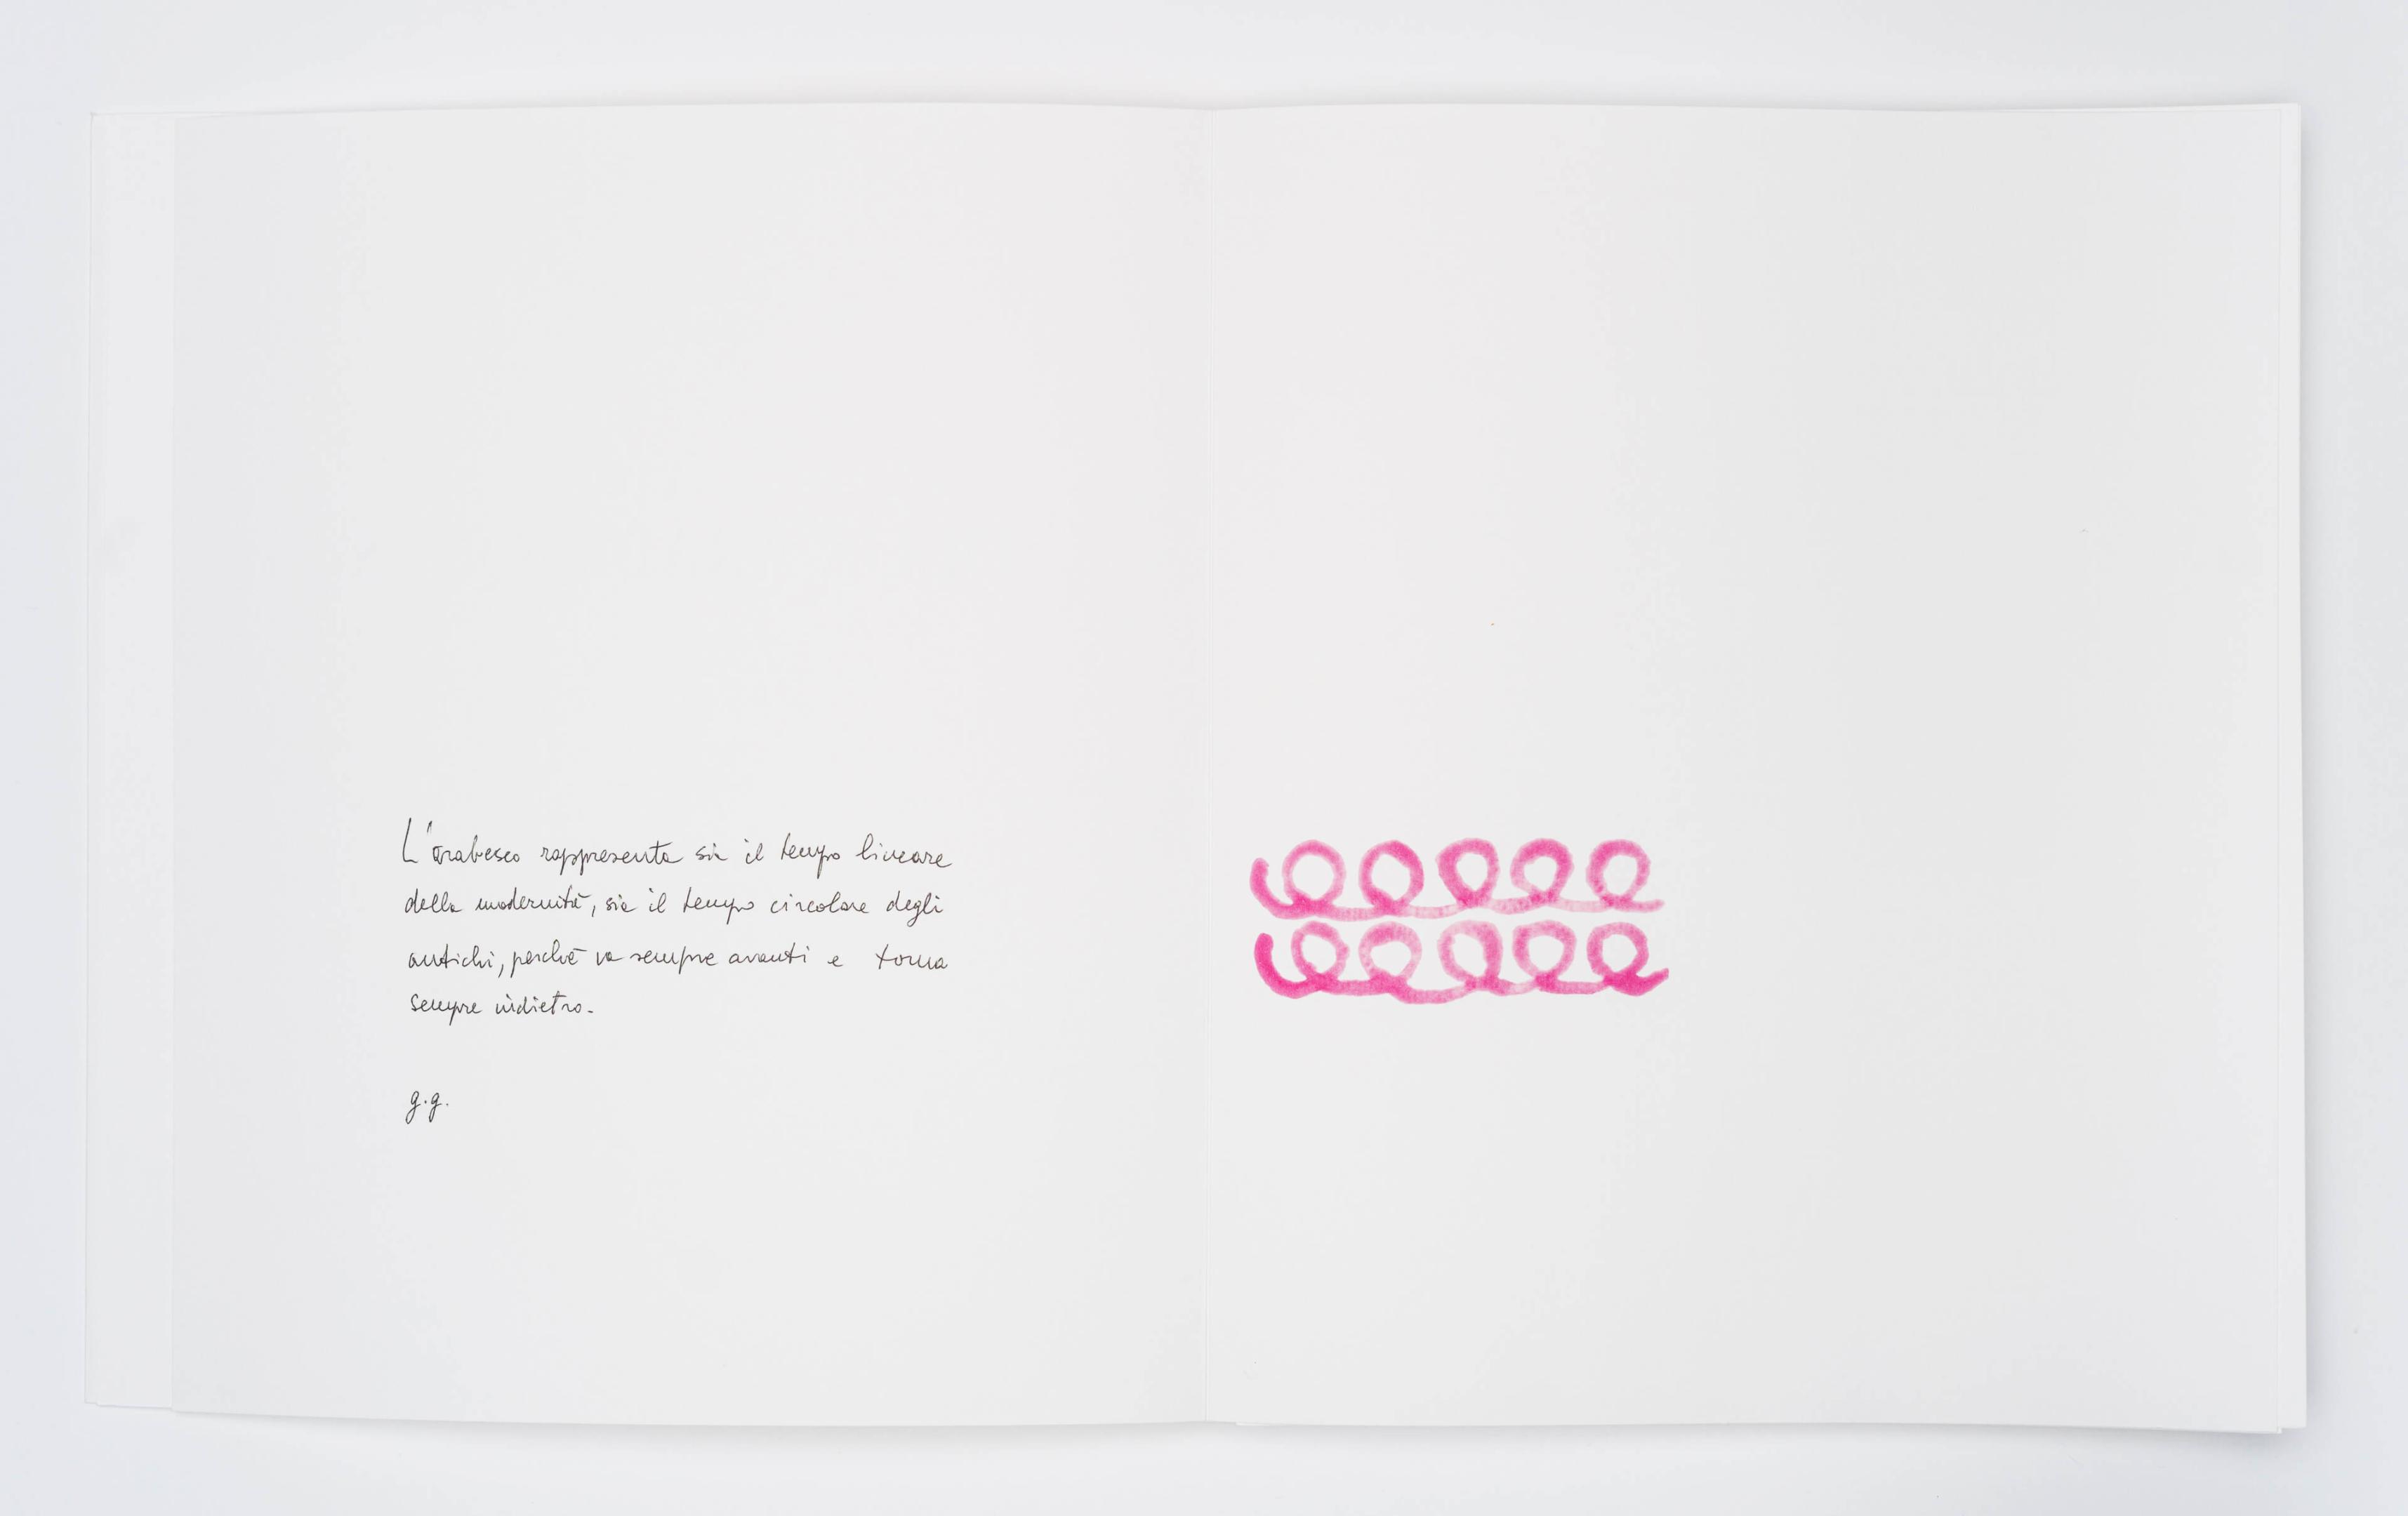 L'arabesco rappresenta sia il tempo lineare
della modernità, sia il tempo circolare degli
antichi, perchè va sempre avanti e torna
sempre indietro.
g.g.